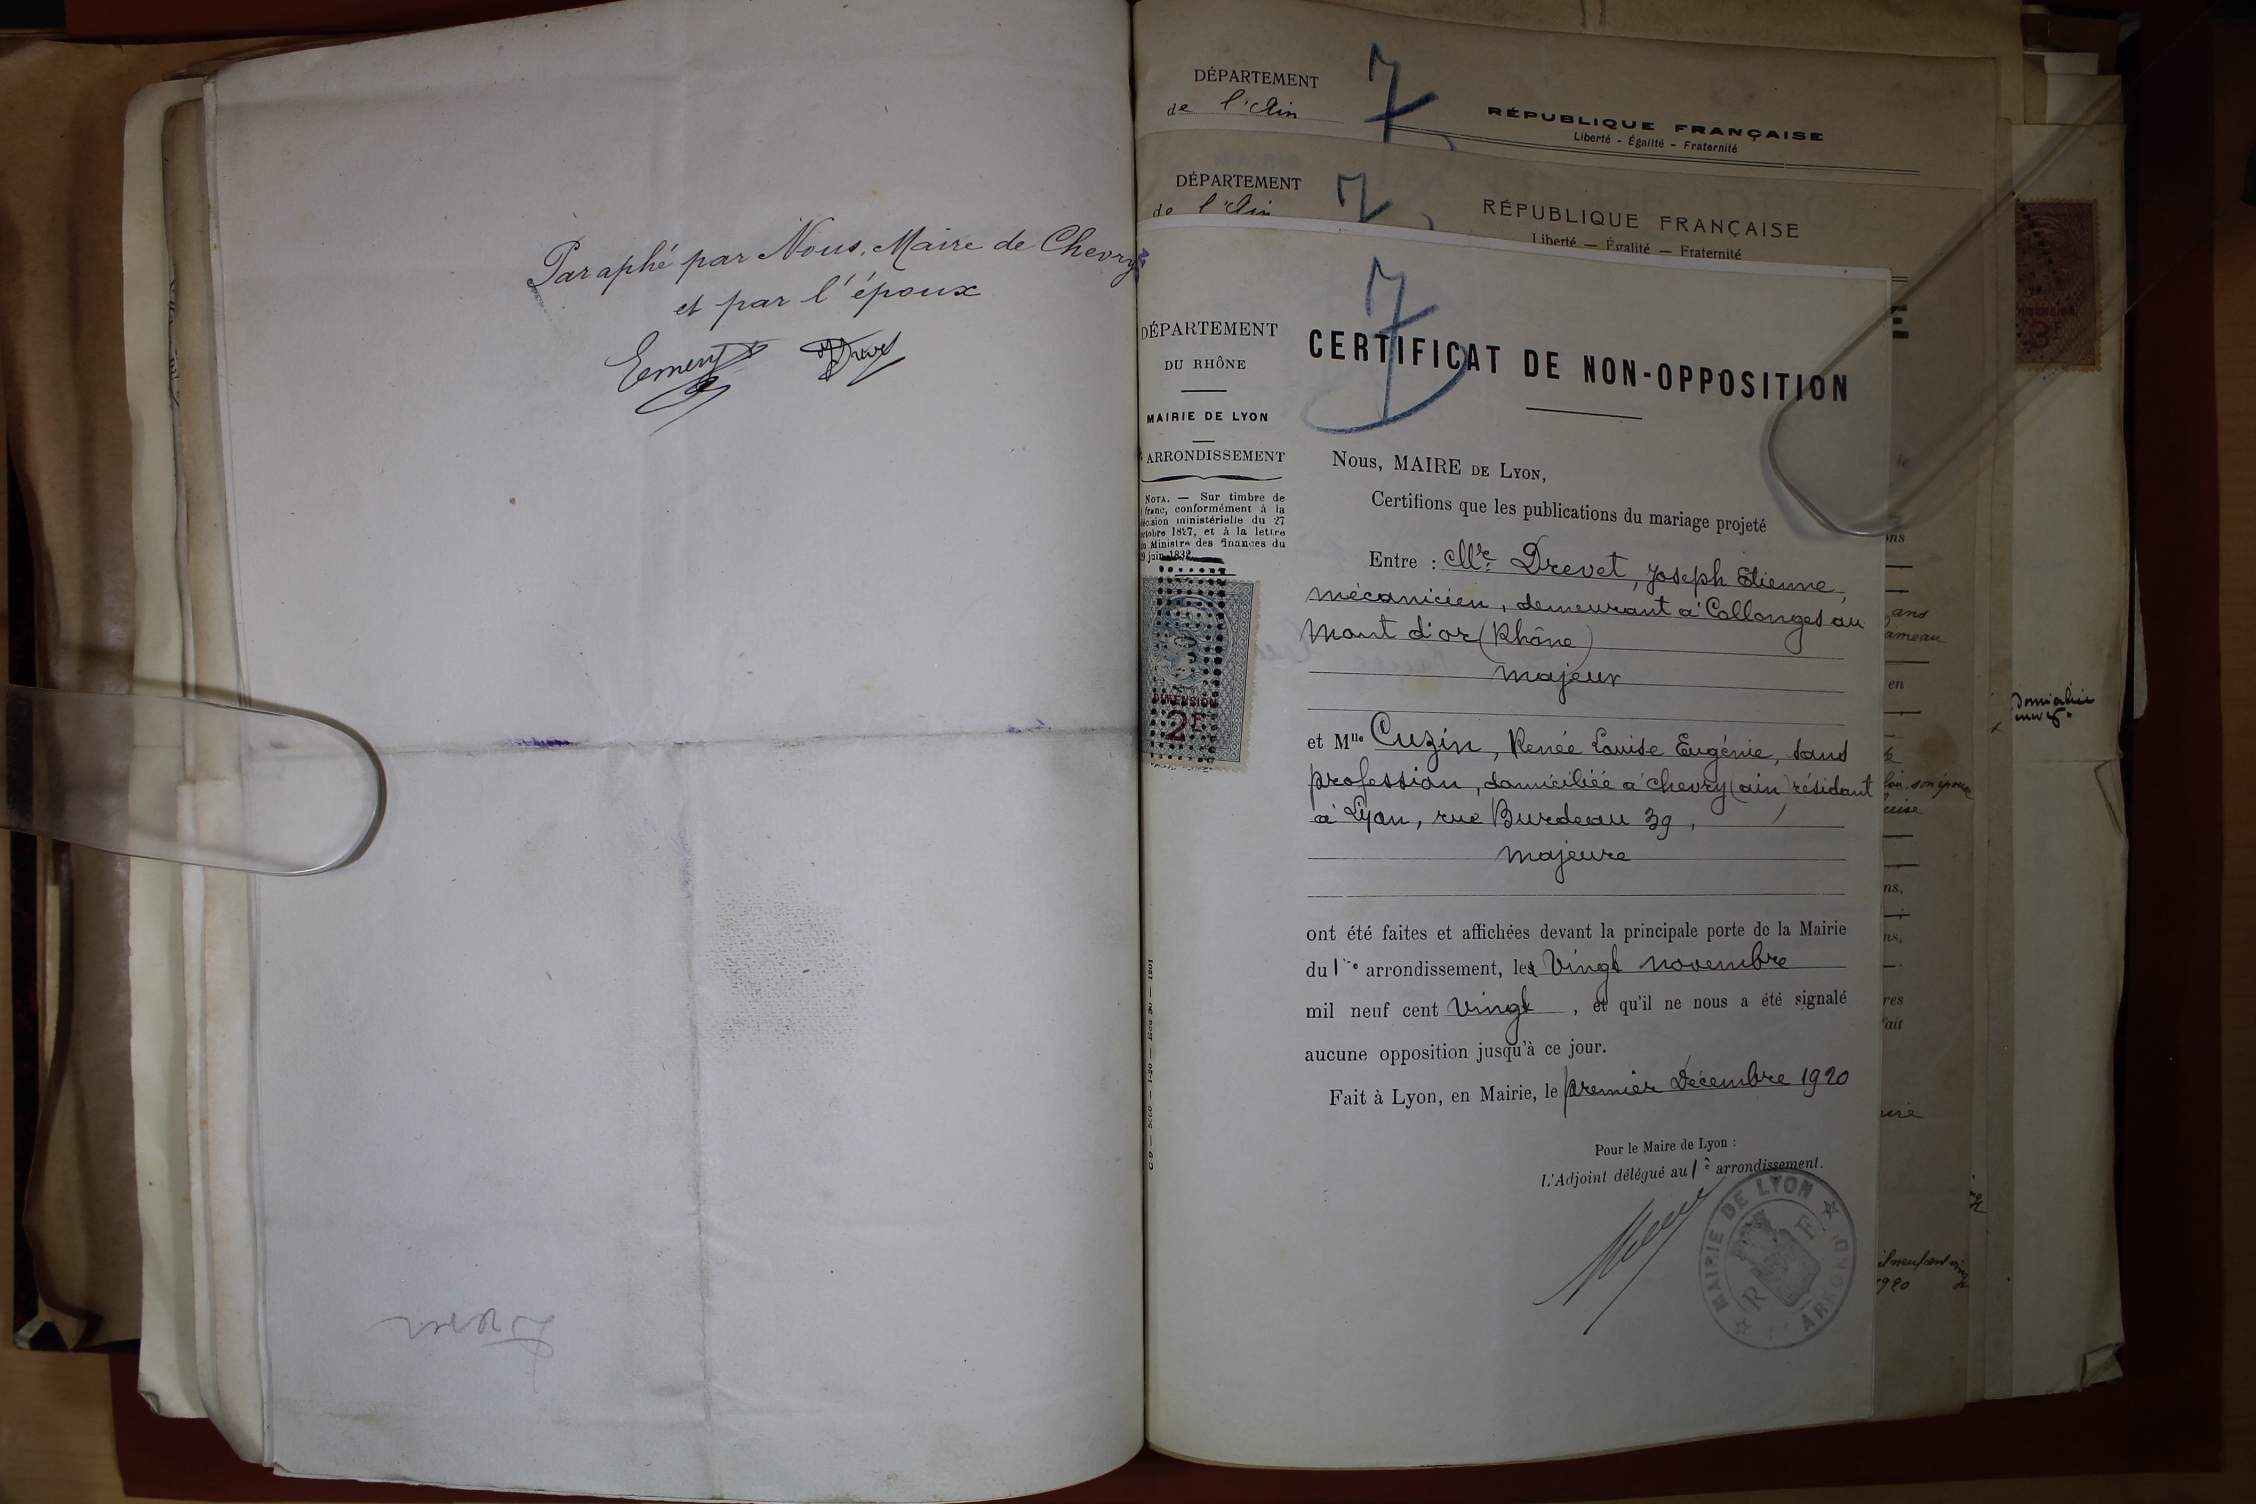 Paraphé par Nous, Maire de Chevry
et par l'époux
Emery Drevet
DÉPARTEMENT
de l'Ain
7
RÉPUBLIQUE FRANÇAISE
Liberté - Égalité - Fraternité
DÉPARTEMENT
de l'Ain
7
RÉPUBLIQUE FRANÇAISE
Liberté — Égalité — Fraternité
7
DÉPARTEMENT
DU RHÔNE
MAIRIE DE LYON
ARRONDISSEMENT
NOTA. — Sur timbre de
franc, conformément à la
décision ministérielle du 27
octobre 1827, et à la lettre
du Ministre des finances du
juin 1832
DIMENSION
2F
CERTIFICAT DE NON-OPPOSITION
Nous, MAIRE DE LYON,
Certifions que les publications du mariage projeté
Entre : Mr. Drevet, Joseph Etienne,
mécanicien, demeurant à Collonges au
Mont d'or (Rhône)
majeur
et Mlle Cuzin, Renée Louise Eugénie, sans
profession, domiciliée à Chevry (ain) résidant
à Lyon, rue Burdeau 39,
majeure
ont été faites et affichées devant la principale porte de la Mairie
du 1er arrondissement, les Vingt novembre
mil neuf cent Vingt, et qu'il ne nous a été signalé
aucune opposition jusqu'à ce jour.
Fait à Lyon, en Mairie, le premier Décembre 1920
Pour le Maire de Lyon :
L'Adjoint délégué au 1e arrondissement.
MAIRIE DE LYON
R F
ARROND
ons
ans
ameau
en
son épouse
ns,
ns,
res
fait
1920
3F